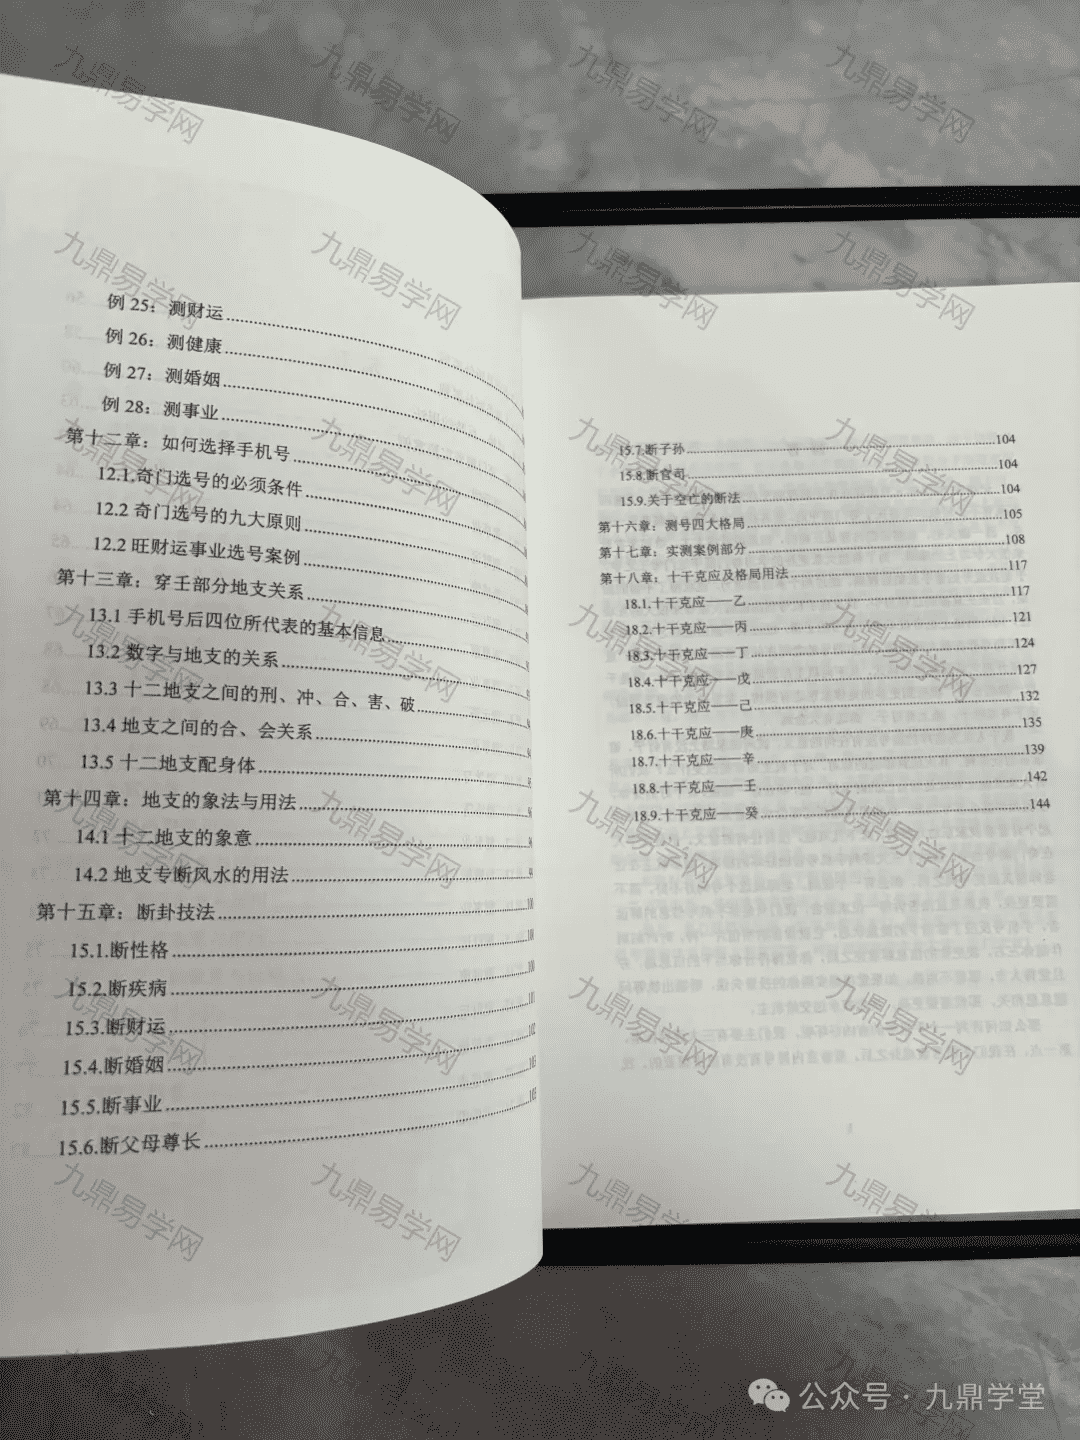 例 25：测财运
例 26：测健康
例 27：测婚姻
例 28：测事业
第十二章：如何选择手机号
12.1.奇门选号的必须条件
12.2 奇门选号的九大原则
12.2 旺财运事业选号案例
第十三章：穿壬部分地支关系
13.1 手机号后四位所代表的基本信息
13.2 数字与地支的关系
13.3 十二地支之间的刑、冲、合、害、破
13.4 地支之间的合、会关系
13.5 十二地支配身体
第十四章：地支的象法与用法
14.1 十二地支的象意
14.2 地支专断风水的用法
第十五章：断卦技法
15.1.断性格
15.2.断疾病
15.3.断财运
15.4.断婚姻
15.5.断事业
15.6.断父母尊长
15.7.断子孙 104
15.8.断官司 104
15.9.关于空亡的断法 104
第十六章：测号四大格局 105
第十七章：实测案例部分 108
第十八章：十干克应及格局用法 117
18.1.十干克应——乙 117
18.2.十干克应——丙 121
18.3.十干克应——丁 124
18.4.十干克应——戊 127
18.5.十干克应——己 132
18.6.十干克应——庚 135
18.7.十干克应——辛 139
18.8.十干克应——壬 142
18.9.十干克应——癸 144
九鼎易学网
公众号·九鼎学堂